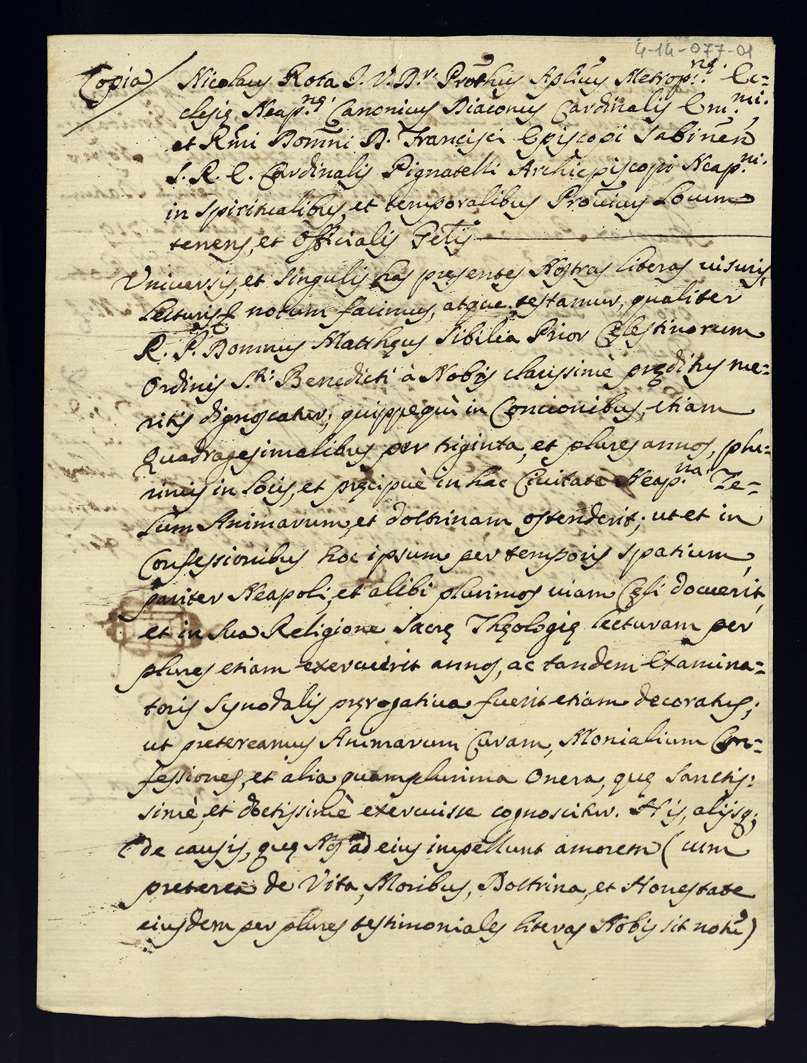 4-14-077-01
Copia/ Nicolaus Rota I. V. Dr. Proths Aplicus Metropnę Ec=
clesię Neapnę Canonicus Diaconus Cardinalis Emmi
et Rmi Domni D. Francisci Episcopi Sabinen
S. R. E. Cardinalis Pignatelli Archiepiscopi Neapni
in spiritualibus, et temporalibus Locum
tenens, et Officialis
Universis, et singulis has presentes Nostras literas visuris,
lecturisq notum facimus, atque testamur, qualiter
R. P. Domnus Matthęus Sibilia Prior Cęlestinorum
Ordinis Sti Benedicti à Nobis clarissimè pręditus me=
ritis dignoscatur; quippe qui in Concionibus, etiam
Quadragesimalibus per triginta, et plures annos, plu=
rimis in locis, et pręcipuè in hac Civitate Neapna Ze=
lum Animarum, et doctrinam ostenderit; ut et in
Confessionibus hoc ipsum per temporis spatium,
pariter Neapoli, et alibi plurimos viam Cęli docuerit,
et in sua Religione Sacrę Thęologię lecturam per
plures etiam exercuerit annos, ac tandem Examina=
toris Synodalis pręrogativa fuerit etiam decoratus;
ut pretereamus Animarum Curam, Monialium Con=
fessiones, et alia quamplurima Onera, quę Sanctis:
simè, et doctissimè exercuisse cognoscitur. His, alijsq;
de causis, quę Nos ad eius impellunt amorem (cum
preterea de Vita, Moribus, Doctrina, et Honestate
eiusdem per plures testimoniales literas Nobis sit notũ)